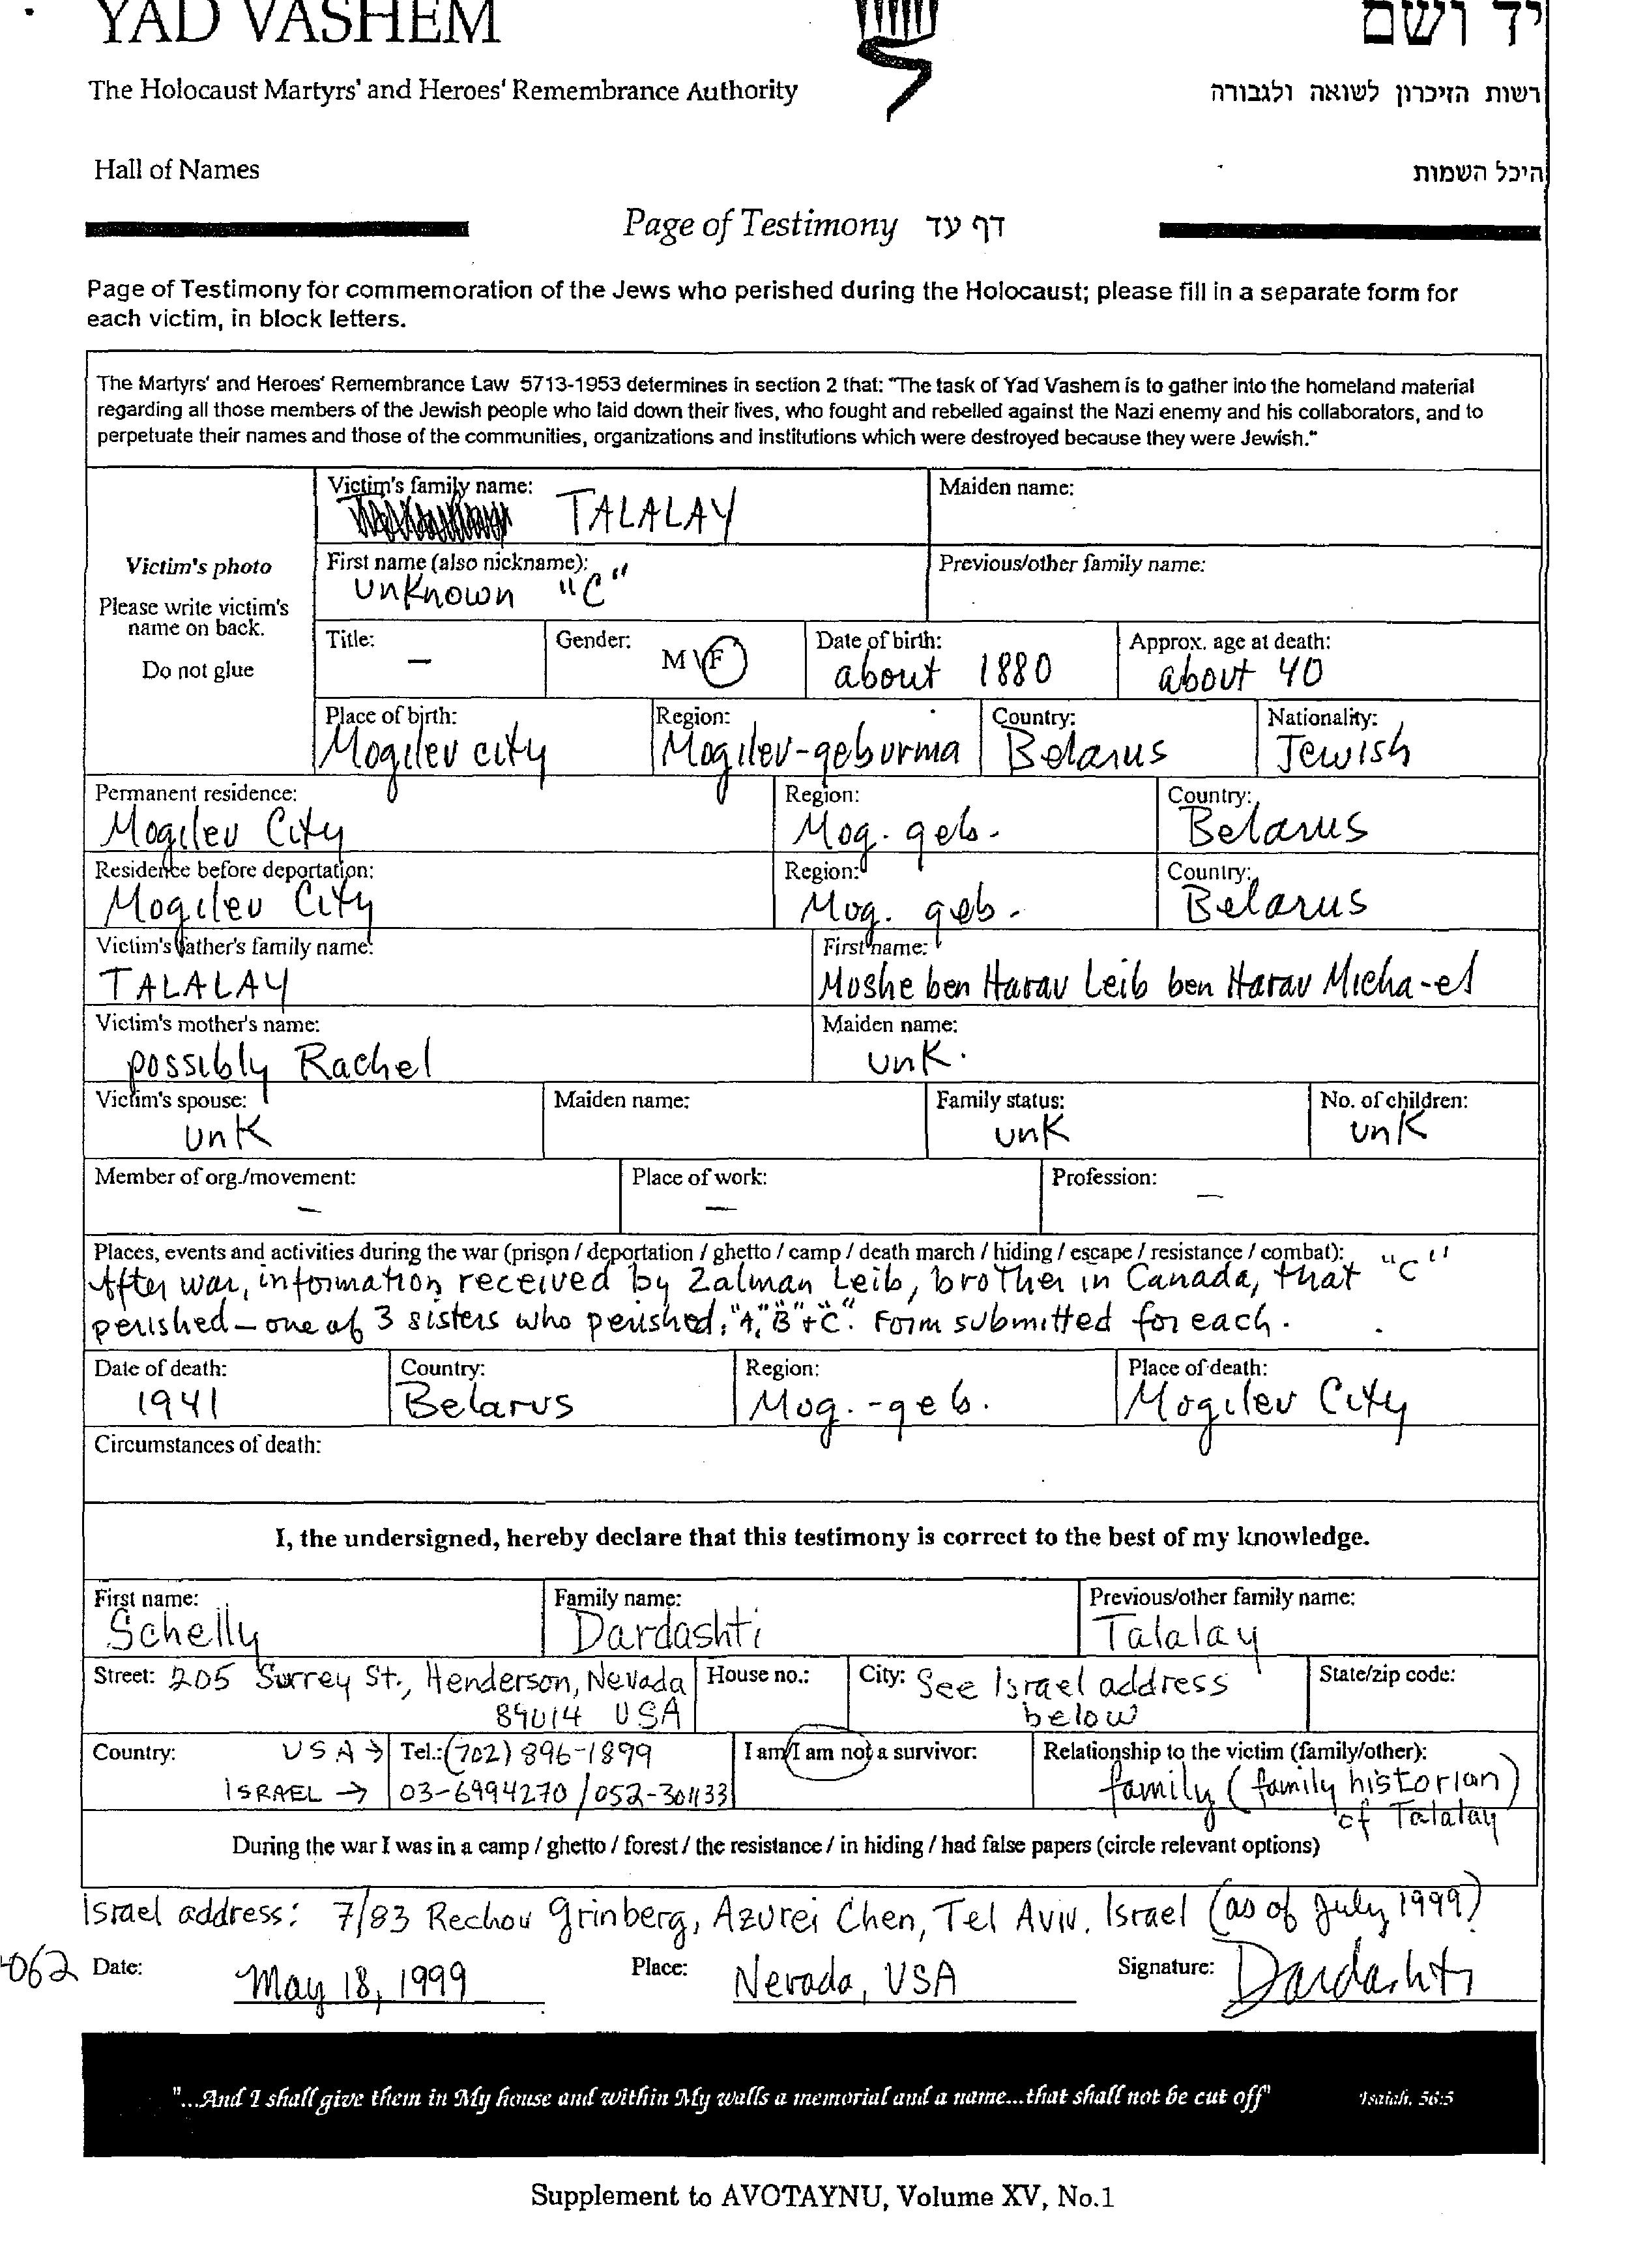 YAD VASHEM
יד ושם
The Holocaust Martyrs' and Heroes' Remembrance Authority
רשות הזיכרון לשואה ולגבורה
Hall of Names
היכל השמות
Page of Testimony דף עד
Page of Testimony for commemoration of the Jews who perished during the Holocaust; please fill in a separate form for
each victim, in block letters.
The Martyrs' and Heroes' Remembrance Law 5713-1953 determines in section 2 that: "The task of Yad Vashem is to gather into the homeland material
regarding all those members of the Jewish people who laid down their lives, who fought and rebelled against the Nazi enemy and his collaborators, and to
perpetuate their names and those of the communities, organizations and institutions which were destroyed because they were Jewish."
Victim's photo
Please write victim's
name on back.
Do not glue
Victim's family name: Maiden name:
TALALAY
First name (also nickname): Previous/other family name:
unknown "C"
Title: Gender: Date of birth: Approx. age at death:
– M\F about 1880 about 40
Place of birth: Region: Country: Nationality:
Mogilev city Mogilev-geburma Belarus Jewish
Permanent residence: Region: Country:
Mogilev City Mog. geb. Belarus
Residence before deportation: Region: Country:
Mogilev City Mog. geb. Belarus
Victim's father's family name: First name:
TALALAY Moshe ben Harav Leib ben Harav Micha-el
Victim's mother's name: Maiden name:
possibly Rachel unk.
Victim's spouse: Maiden name: Family status: No. of children:
unk unk unk
Member of org./movement: Place of work: Profession:
– – –
Places, events and activities during the war (prison / deportation / ghetto / camp / death march / hiding / escape / resistance / combat):
After war, information received by Zalman Leib, brother in Canada, that "C"
perished – one of 3 sisters who perished, "A," "B" + "C". Form submitted for each.
Date of death: Country: Region: Place of death:
1941 Belarus Mog.-geb. Mogilev City
Circumstances of death:
I, the undersigned, hereby declare that this testimony is correct to the best of my knowledge.
First name: Family name: Previous/other family name:
Schelly Dardashti Talalay
Street: 205 Surrey St., Henderson, Nevada House no.: City: See Israel address State/zip code:
89014 USA below
Country: USA → Tel.: (702) 896-1899 I am/I am not a survivor: Relationship to the victim (family/other):
ISRAEL → 03-6994270 / 052-301133 family (family historian)
of Talalay
During the war I was in a camp / ghetto / forest / the resistance / in hiding / had false papers (circle relevant options)
Israel address: 7/83 Rechov Grinberg, Azurei Chen, Tel Aviv, Israel (as of July 1999)
062 Date: May 18, 1999 Place: Nevada, USA Signature: Dardashti
"...And I shall give them in My house and within My walls a memorial and a name...that shall not be cut off" Isaiah, 56:5
Supplement to AVOTAYNU, Volume XV, No.1